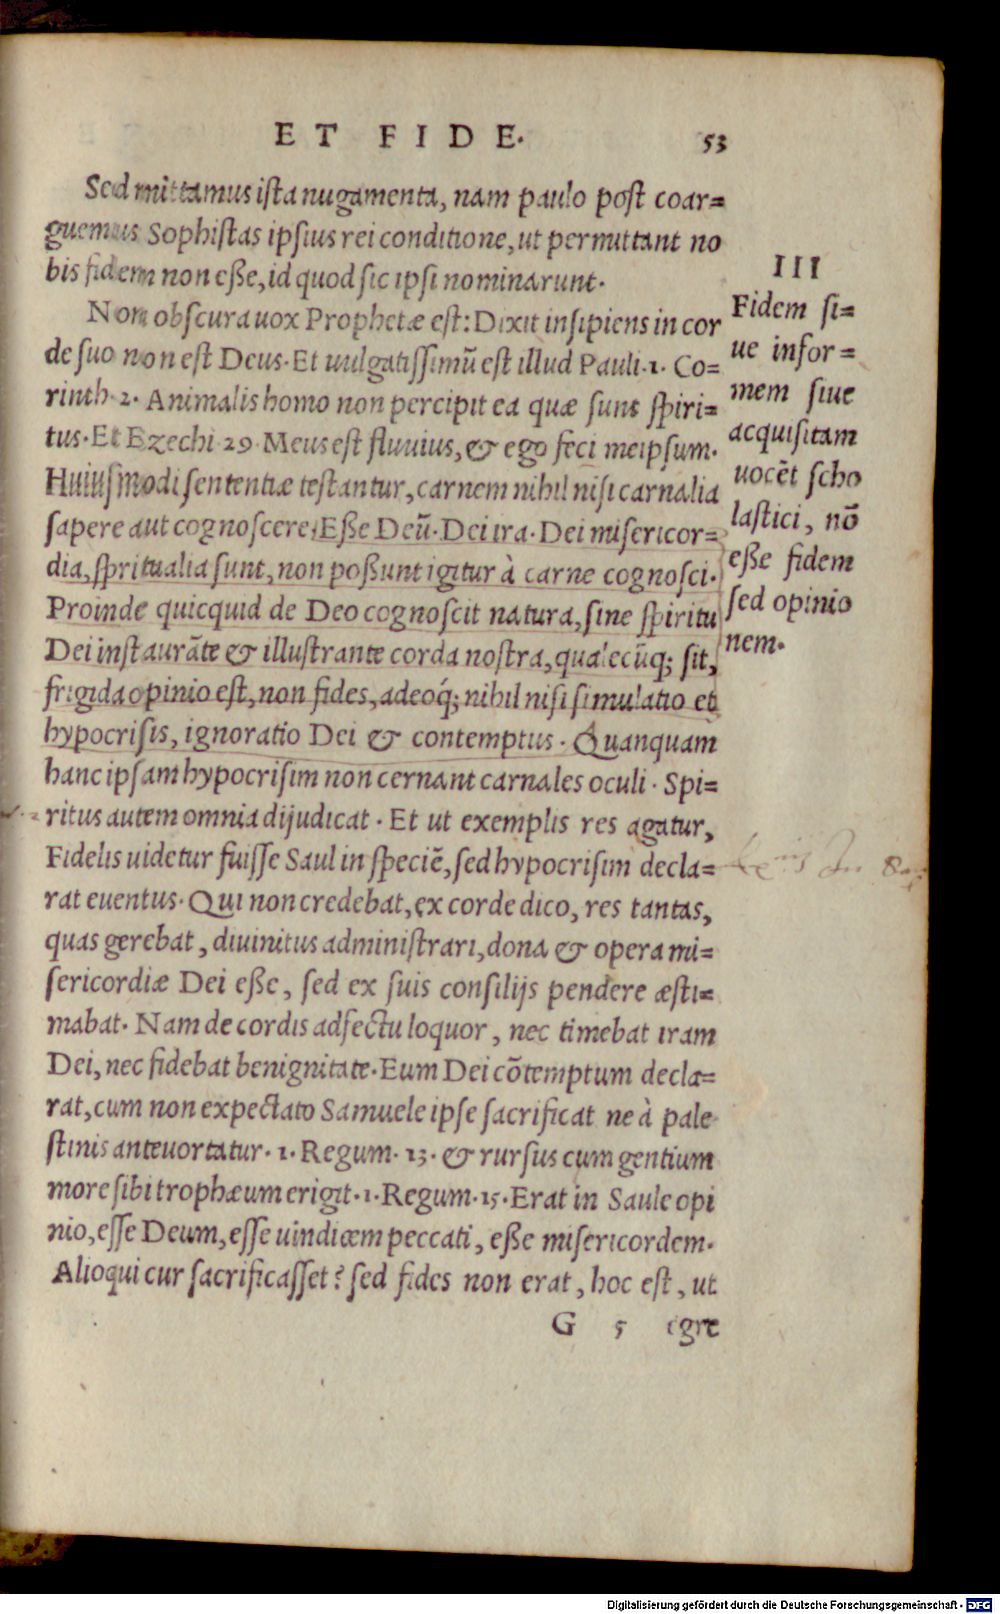 ET FIDE. 53
Sed mittamus ista nugamenta, nam paulo post coar=
guemus Sophistas ipsius rei conditione, ut permittant no
bis fidem non eße, id quod sic ipsi nominarunt.
Non obscura uox Prophetæ est: Dixit insipiens in cor
de suo non est Deus. Et uulgatissimũ est illud Pauli. 1. Co=
rinth. 2. Animalis homo non percipit ea quæ sunt spiri=
tus. Et Ezechi 29. Meus est fluuius, & ego feci meipsum.
Huiusmodi sententiæ testantur, carnem nihil nisi carnalia
sapere aut cognoscere. Eße Deũ. Dei ira. Dei misericor=
dia, spritualia sunt, non poßunt igitur à carne cognosci.
Proinde quicquid de Deo cognoscit natura, sine spiritu
Dei instaurãte & illustrante corda nostra, qualecũq; sit,
frigida opinio est, non fides, adeoq́; nihil nisi simulatio et
hypocrisis, ignoratio Dei & contemptus. Quanquam
hanc ipsam hypocrisim non cernant carnales oculi. Spi=
ritus autem omnia dijudicat. Et ut exemplis res agatur,
Fidelis uidetur fuisse Saul in speciẽ, sed hypocrisim decla=
rat euentus. Qui non credebat, ex corde dico, res tantas,
quas gerebat, diuinitus administrari, dona & opera mi=
sericordiæ Dei eße, sed ex suis consilijs pendere æsti=
mabat. Nam de cordis adfectu loquor, nec timebat iram
Dei, nec fidebat benignitate. Eum Dei cõtemptum decla=
rat, cum non expectato Samuele ipse sacrificat ne à pale
stinis anteuortatur. 1. Regum. 13. & rursus cum gentium
more sibi trophæum erigit. 1. Regum. 15. Erat in Saule opi
nio, esse Deum, esse uindicem peccati, eße misericordem.
Alioqui cur sacrificasset? sed fides non erat, hoc est, ut
G 5 egre
III
Fidem si=
ue infor=
mem siue
acquisitam
uocẽt scho
lastici, nõ
eße fidem
sed opinio
nem.
Digitalisierung gefördert durch die Deutsche Forschungsgemeinschaft - DFG